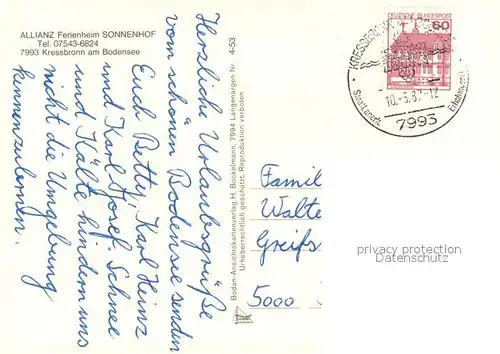 ALLIANZ Ferienheim SONNENHOF
Tel. 07543-6824
7993 Kressbronn am Bodensee
Herzliche Urlaubsgrüße
vom schönen Bodensee senden
Euch Betty, Karl Heinz
und Karl Josef. Schnee
und Kälte hindern uns
nicht die Umgebung
kennenzulernen.
4-53
Bodan-Ansichtskartenverlag H. Bockelmann, 7994 Langenargen Nr.
Urheberrechtlich geschützt. Reproduktion verboten
DEUTSCHE BUNDESPOST
60
KRESSBRONN
10.-5.87-12
Staatl. anerk. Erholungsort
7993
Famil
Walte
Greifs
5000
privacy protection
Datenschutz